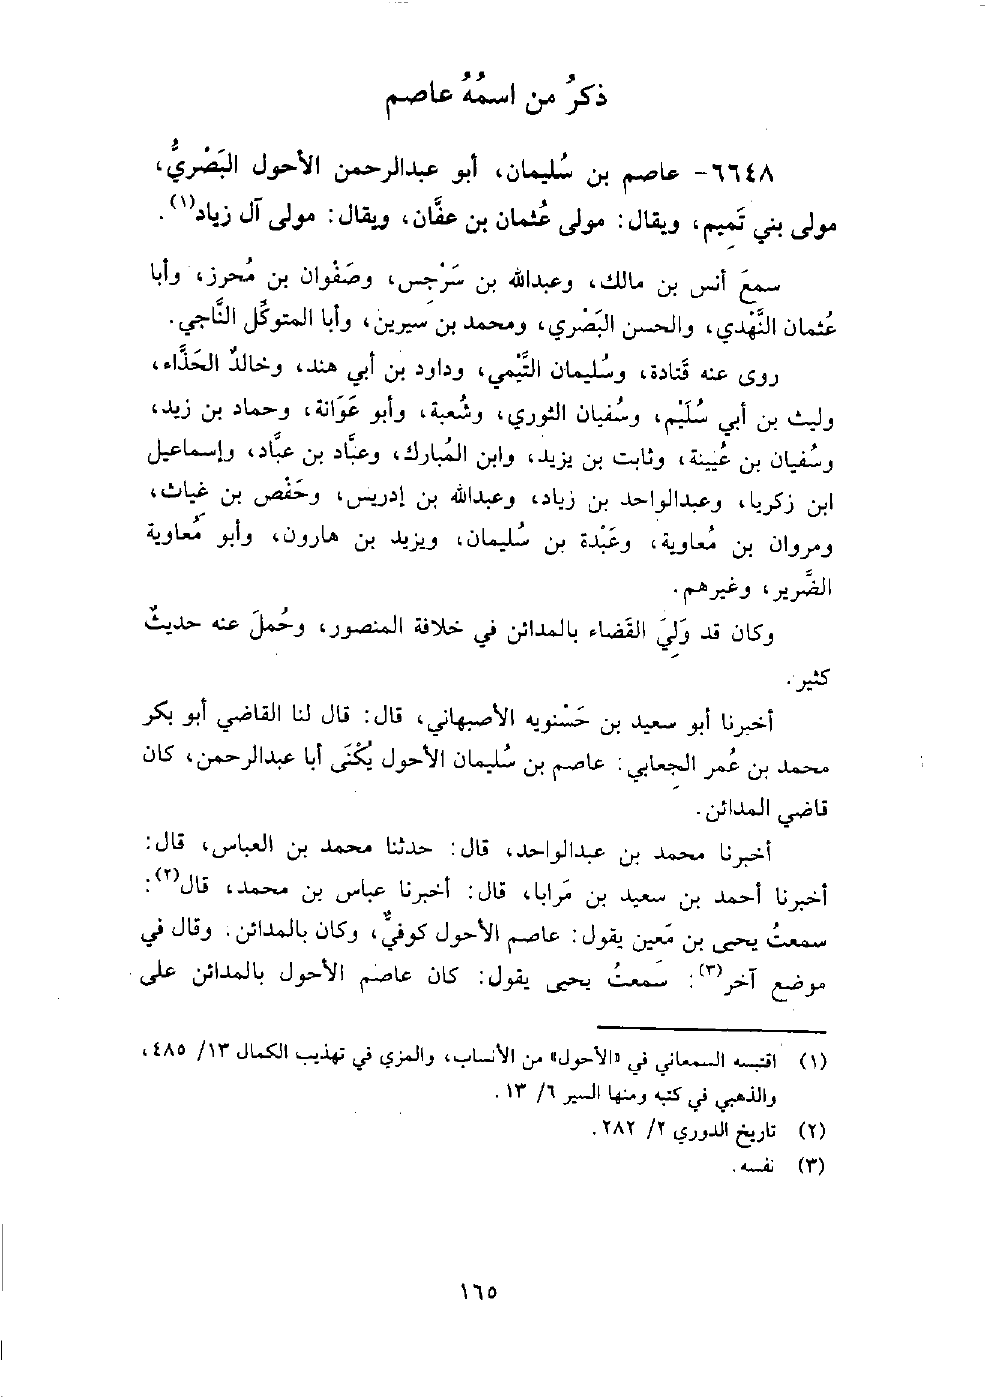 ذكرُ من اسمُهُ عاصم
٦٦٤٨- عاصم بن سُليمان، أبو عبدالرحمن الأحول البَصْريُّ،
مولى بني تَميم، ويقال: مولى عُثمان بن عفَّان، ويقال: مولى آل زياد(١).
سمعَ أنس بن مالك، وعبدالله بن سَرْجِس، وصَفْوان بن مُحرز، وأبا
عُثمان النَّهْدي، والحسن البَصْري، ومحمد بن سيرين، وأبا المتوكِّل النَّاجي.
روى عنه قَتادة، وسُليمان التَّيْمي، وداود بن أبي هند، وخالدٌ الحَذَّاء،
وليث بن أبي سُلَيْم، وسُفيان الثوري، وشُعبة، وأبو عَوَانة، وحماد بن زيد،
وسُفيان بن عُيينة، وثابت بن يزيد، وابن المُبارك، وعبَّاد بن عبَّاد، وإسماعيل
ابن زكريا، وعبدالواحد بن زياد، وعبدالله بن إدريس، وحَفْص بن غياث،
ومروان بن مُعاوية، وعَبْدة بن سُليمان، ويزيد بن هارون، وأبو مُعاوية
الضَّرير، وغيرهم.
وكان قد وَلِيَ القَضاء بالمدائن في خلافة المنصور، وحُملَ عنه حديثٌ
كثير.
أخبرنا أبو سعيد بن حَسْنويه الأصبهاني، قال: قال لنا القاضي أبو بكر
محمد بن عُمر الجِعابي: عاصم بن سُليمان الأحول يُكْنَى أبا عبدالرحمن، كان
قاضي المدائن.
أخبرنا محمد بن عبدالواحد، قال: حدثنا محمد بن العباس، قال:
أخبرنا أحمد بن سعيد بن مَرابا، قال: أخبرنا عباس بن محمد، قال(٢):
سمعتُ يحيى بن مَعين يقول: عاصم الأحول كوفيٌّ، وكان بالمدائن. وقال في
موضع آخر(٣): سَمعتُ يحيى يقول: كان عاصم الأحول بالمدائن على
(١) اقتبسه السمعاني في «الأحول» من الأنساب، والمزي في تهذيب الكمال ١٣/ ٤٨٥،
والذهبي في كتبه ومنها السير ٦/ ١٣.
(٢) تاريخ الدوري ٢/ ٢٨٢.
(٣) نفسه.
١٦٥